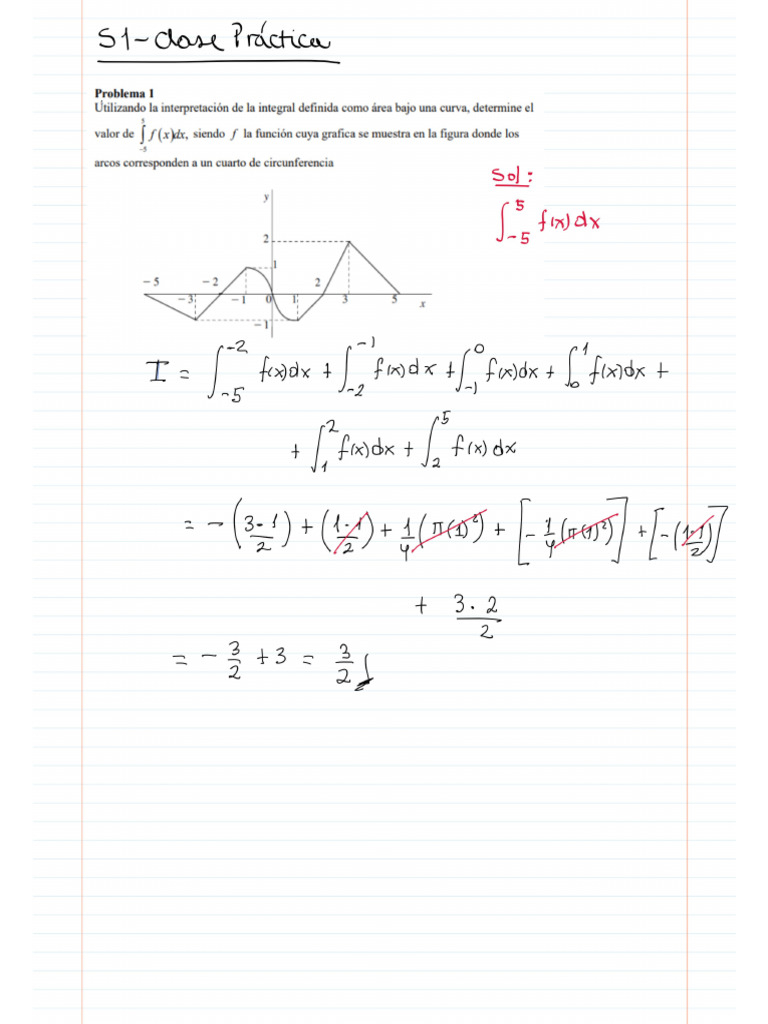 S1 - Clase Práctica
Problema 1
Utilizando la interpretación de la integral definida como área bajo una curva, determine el
valor de ∫_{-5}^{5} f(x)dx, siendo f la función cuya grafica se muestra en la figura donde los
arcos corresponden a un cuarto de circunferencia
Sol:
∫_{-5}^{5} f(x) dx
y
2
1
-5 -2 2
-3 -1 0 1 3 5 x
-1
I = ∫_{-5}^{-2} f(x)dx + ∫_{-2}^{-1} f(x)dx + ∫_{-1}^{0} f(x)dx + ∫_{0}^{1} f(x)dx +
+ ∫_{1}^{2} f(x)dx + ∫_{2}^{5} f(x)dx
= -(3·1/2) + (1·1/2) + 1/4(π(1)²) + [-1/4(π(1)²)] + [-(1·1/2)]
+ 3·2/2
= -3/2 + 3 = 3/2